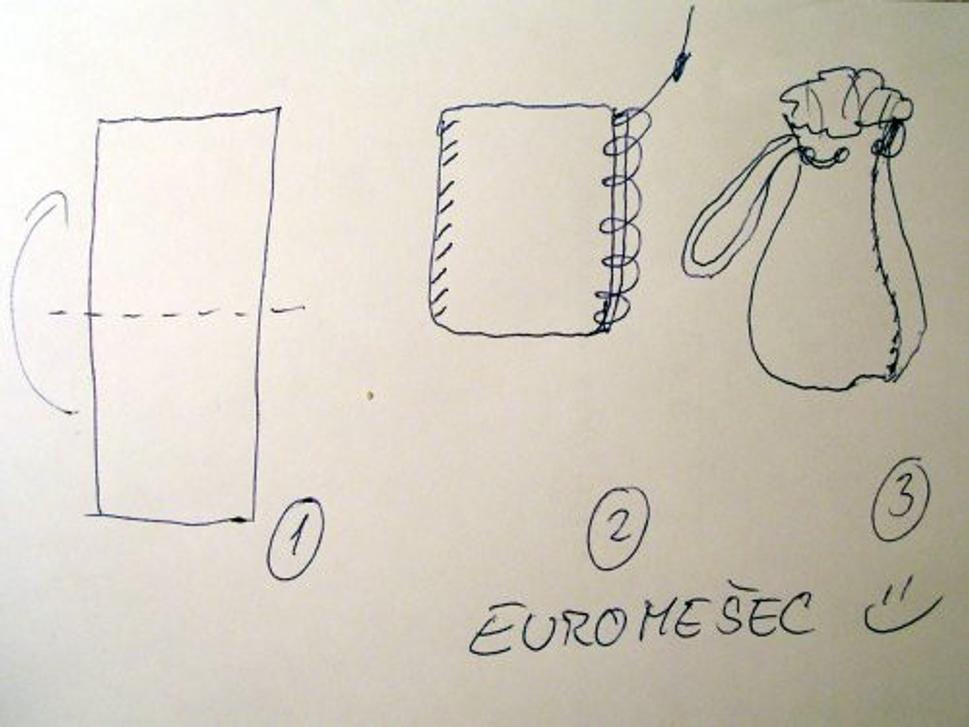 1
2
3
EUROMEŠEC